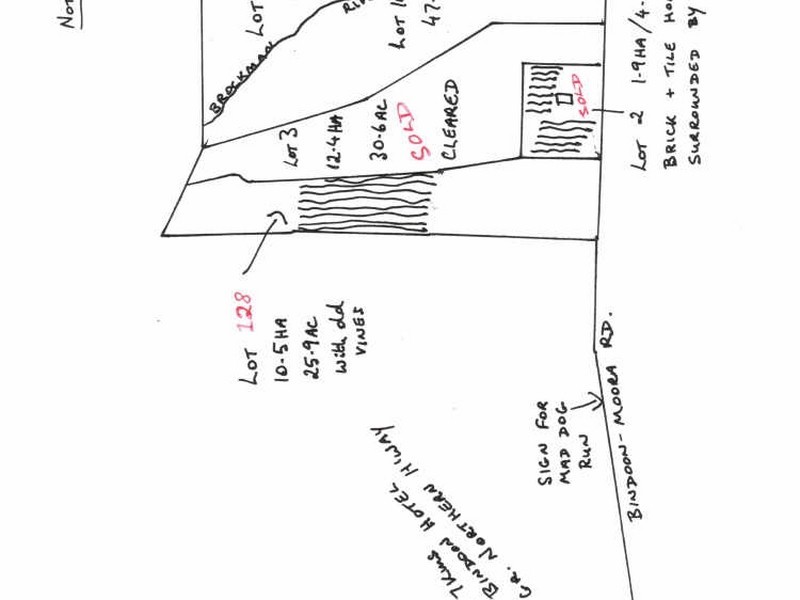 NOT
LOT
BROCKMAN
RI
LOT 10
47.
LOT 3
12.4HA
30.6AC
SOLD
CLEARED
SOLD
LOT 2 1.9HA/4.
BRICK + TILE HO
SURROUNDED BY
LOT 128
10.5HA
25.9AC
with old
VINES
SIGN FOR
MAD DOG
RUN
BINDOON-MOORA RD.
7KMS
BINDOON HOTEL
GR. NORTHERN H'WAY